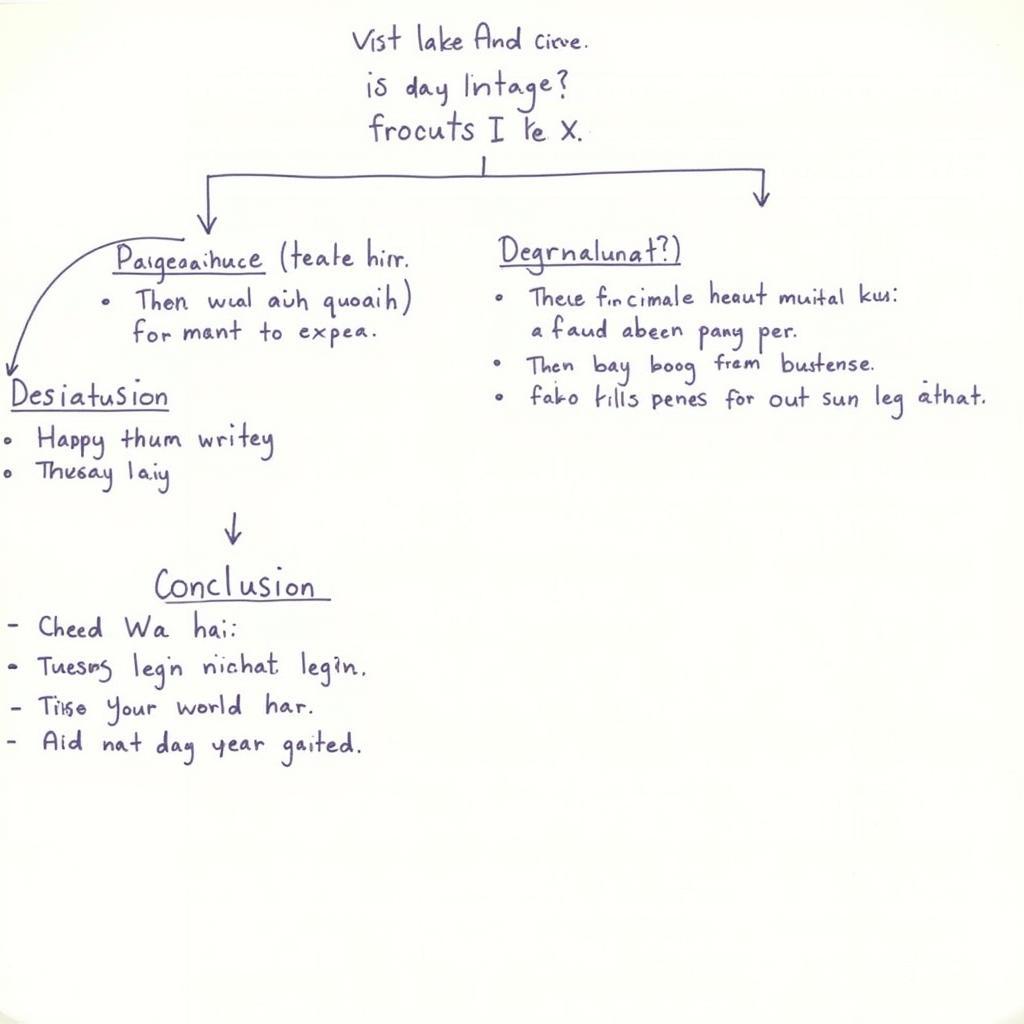 Vist lake And cirve.
is day lintage?
frocuts I te X.
Paigeaaihuce (teate hirr.
• Then wual aiuh quoaih)
for mant to expea.
Degrnalunat?)
• Theue fin cimale heaut muital kus:
a faud abeen pany per.
• Then bay boog frem bustense.
• fako fills penes for out sun leg athat.
Desiatusion
• Happy thum writey
• Thusay laiy
Conclusion
- Cheed Wa hai:
- Tuesrs legin nichat legin.
- Tise Your world har.
- Aid nat day year gaited.